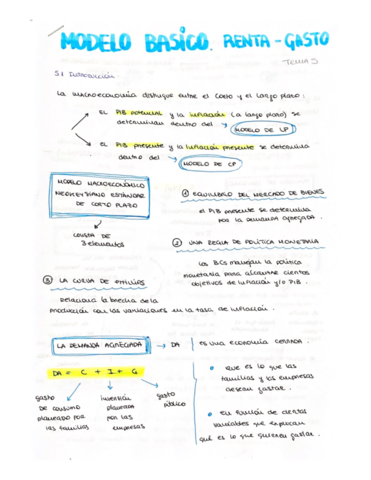 MODELO BASICO. RENTA - GASTO
TEMA 5
5.1 Introducción
La macroeconomía distingue entre el corto y el largo plazo:
EL PIB potencial y la inflación (a largo plazo) se
determinan dentro del → MODELO DE LP
EL PIB presente y la inflación presente se determina
dentro del → MODELO DE CP
MODELO MACROECONÓMICO
NEOKEYSIANO ESTÁNDAR
DE CORTO PLAZO
CONSTA DE
3 elementos
① EQUILIBRIO DEL MERCADO DE BIENES
el PIB presente se determina
por la demanda agregada.
② UNA REGLA DE POLÍTICA MONETARIA
Los BCs manejan la política
monetaria para alcanzar ciertos
objetivos de inflación y/o PIB.
③ LA CURVA DE PHILLIPS
Relaciona la brecha de la
producción con las variaciones en la tasa de inflación.
LA DEMANDA AGREGADA → DA
es una economía cerrada.
DA = C + I + G
gasto
DE CONSUMO
planeado por
las familias
inversión
planeada
por las
empresas
gasto
público
que es lo que las
familias y las empresas
desean gastar.
En función de ciertas
variables que explican
qué es lo que quieren gastar.